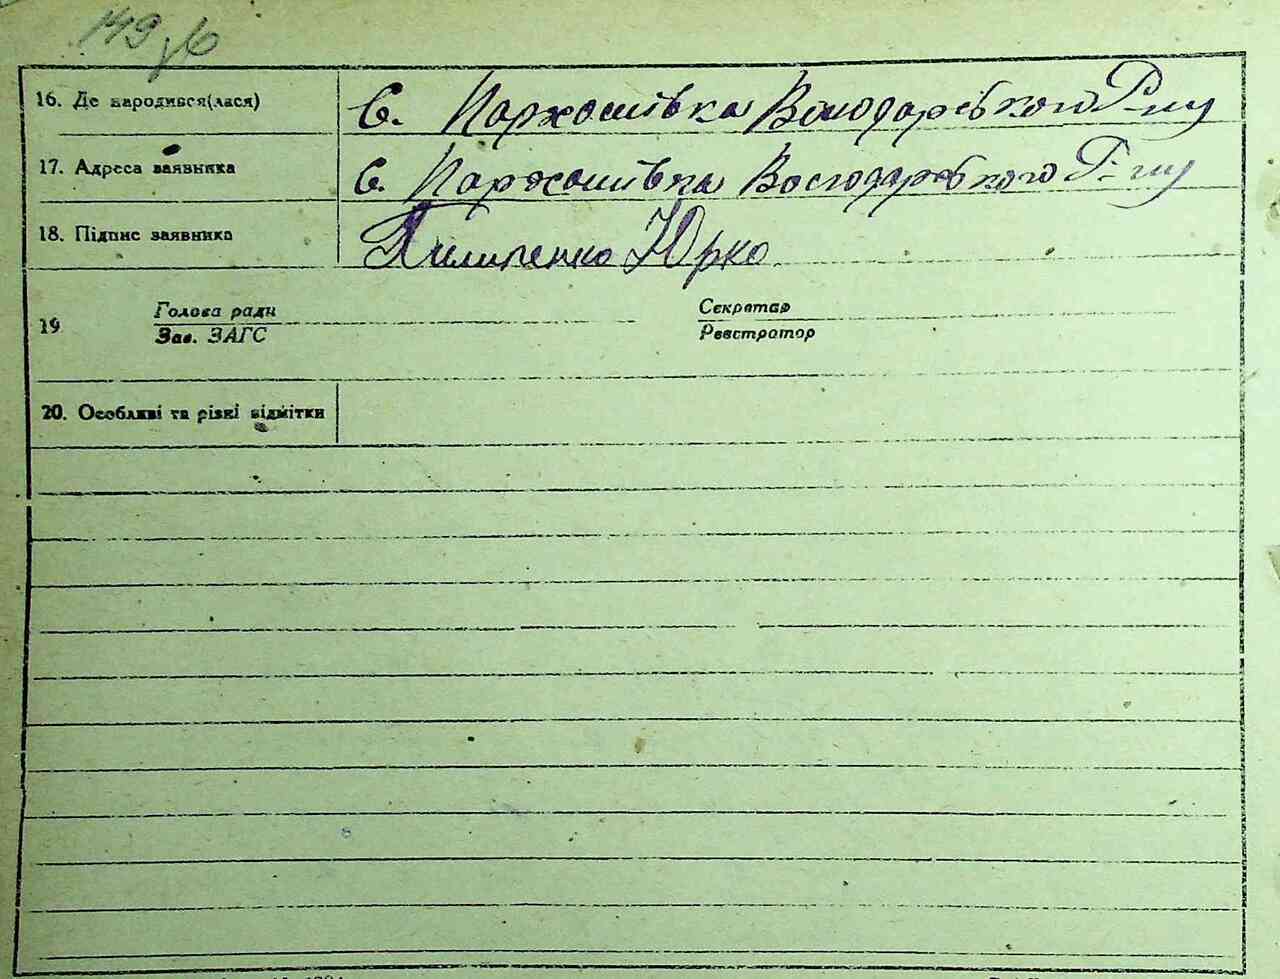 149 зв
16. Де народився(лася) С. Пархомівка Володарського Р-ну
17. Адреса заявника С. Пархомівка Володарського Р-ну
18. Підпис заявника Пилипенко Юрко
19 Голова ради Секретар
Зав. ЗАГС Реєстратор
20. Особливі та різні відмітки